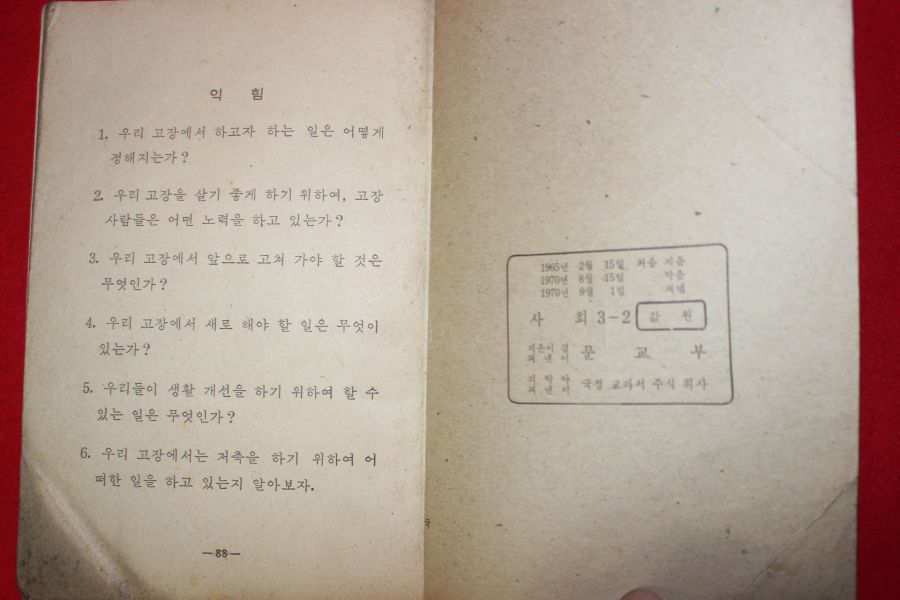 익 힘
1. 우리 고장에서 하고자 하는 일은 어떻게
정해지는가?
2. 우리 고장을 살기 좋게 하기 위하여, 고장
사람들은 어떤 노력을 하고 있는가?
3. 우리 고장에서 앞으로 고쳐 가야 할 것은
무엇인가?
4. 우리 고장에서 새로 해야 할 일은 무엇이
있는가?
5. 우리들이 생활 개선을 하기 위하여 할 수
있는 일은 무엇인가?
6. 우리 고장에서는 저축을 하기 위하여 어
떠한 일을 하고 있는지 알아보자.
—88—
1965년 2월 15일 처음 지음
1970년 8월 15일 박음
1970년 9월 1일 펴냄
사 회 3-2 값 원
지은이 겸
펴낸이 문 교 부
국정 교과서 주식 회사
펴낸이